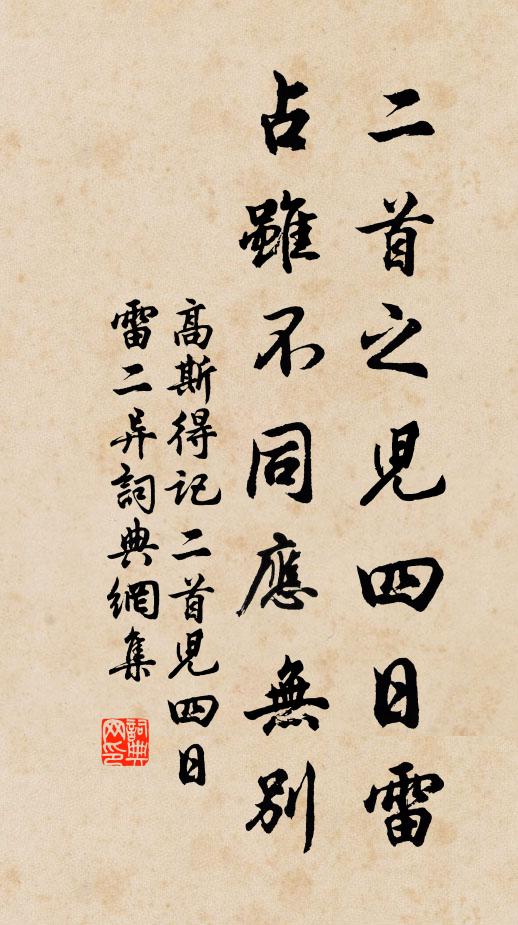 二首之兒四日雷
占雖不同應無別
高斯得記二首兒四日
雷二异詞典網集
詞典
网印